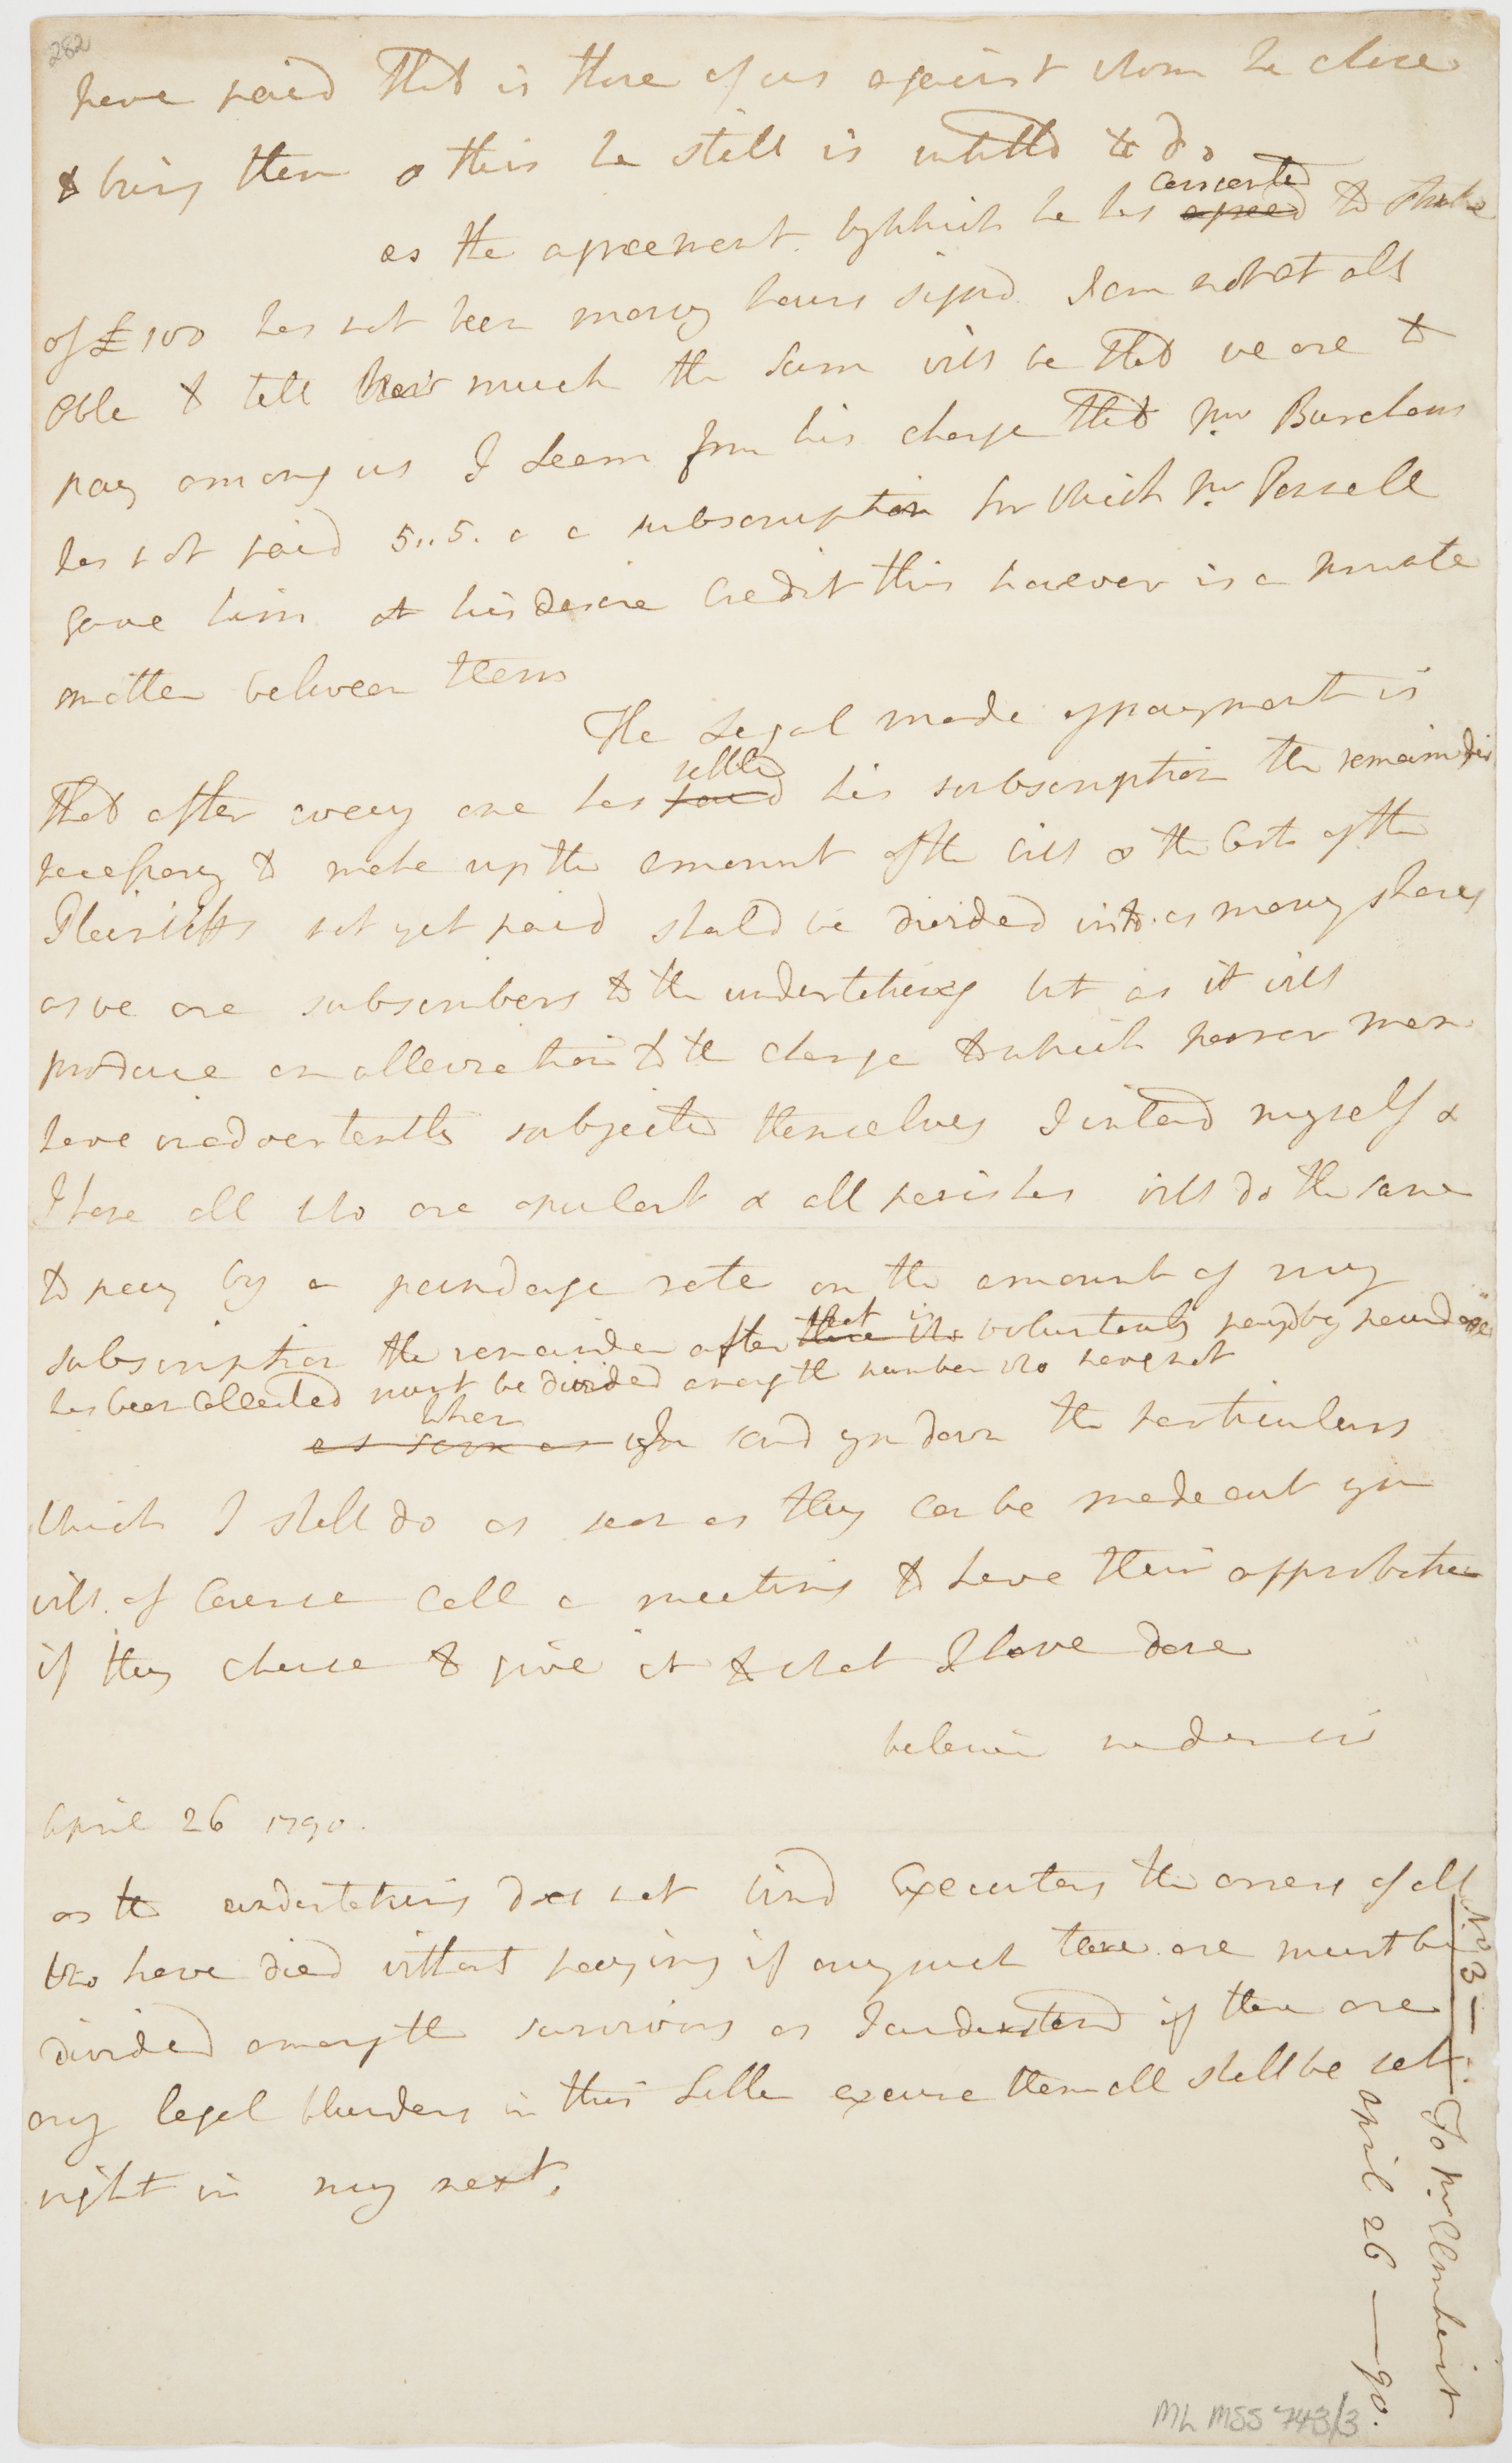 282
have paid that is those of us against whom he chose
to bring them & this he still is intitled to do
as the agreement by which he has consented agreed to
of £100 has not been many hours signd I am not at all
able to tell how much the sum will be that we are to
pay among us I Learn from his charge that Mr Burcham
has not paid 5..5. a subscription for which Mr Parnell
gave him at his desire Credit this however is a private
matter between them
The Legal mode of payment is
that after every one has settled paid his subscription the remainder
necessary to make up the amount of the bill & the Costs of the
Plaintiffs not yet paid shald be divided into as many shares
as we are subscribers to the undertaking but as it will
produce an alleviation to the charge to which poorer men
have inadvertently subjected themselves I intend myself &
I hope all who are opulent & all parishes will do the same
to pay by a poundage rate on the amount of my
subscription the remainder after that is voluntarily payd by poundage
has been Collected must be divided among the number who have not
as soon as when I send you down the particulars
which I shall do as soon as they can be made out you
will of Course Call a meeting to have their approbation
if they chuse to give it to what I have done
beleive me dear sir
April 26 1790.
as the undertaking does not bind Executors the arrears of all
who have died without paying if any such there are must be
divided among the survivors as I understand if there are
any legal blunders in this Letter excuse them all shall be set
right in my next.
No 3 —
To Mr
April 26 — 90.
ML MSS 743/3